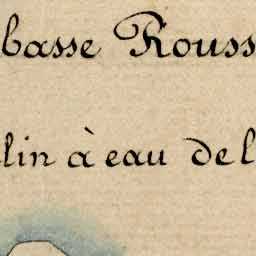 basse Rouss
lin à eau de l